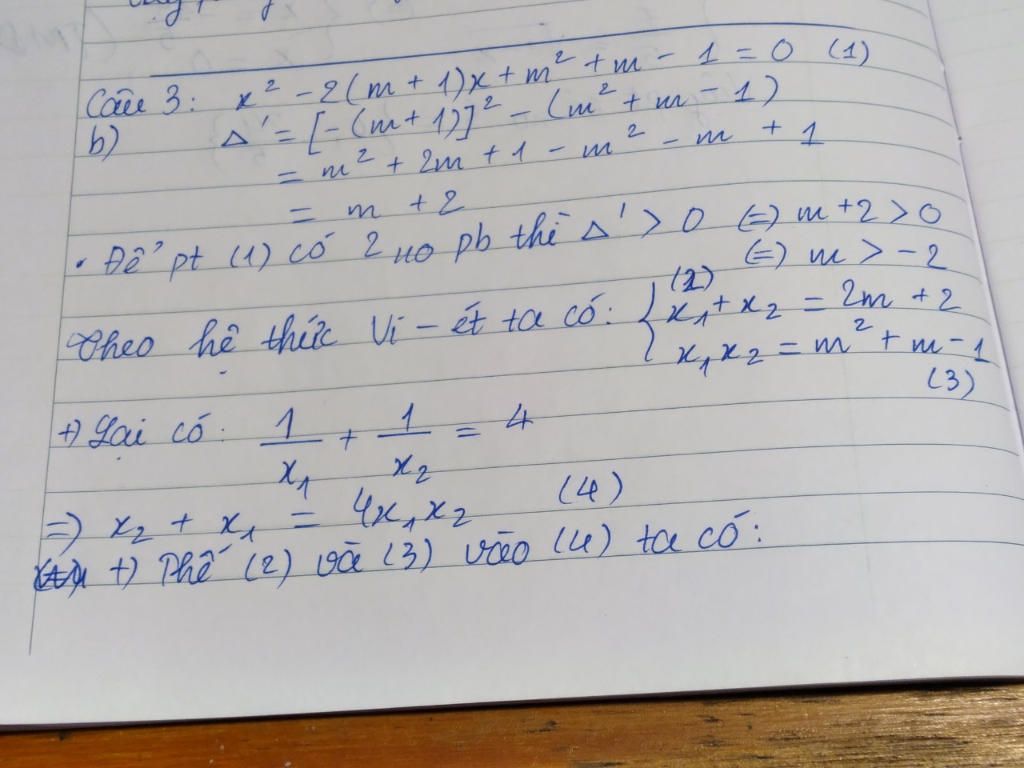 Câu 3: x² - 2(m + 1)x + m² + m - 1 = 0 (1)
b) Δ' = [-(m + 1)]² - (m² + m - 1)
= m² + 2m + 1 - m² - m + 1
= m + 2
• Để pt (1) có 2 no pb thì Δ' > 0 (=) m + 2 > 0
(=) m > -2
(2)
Theo hệ thức Vi - ét ta có: { x₁ + x₂ = 2m + 2
x₁x₂ = m² + m - 1
(3)
+) Lại có: 1/x₁ + 1/x₂ = 4
=) x₂ + x₁ = 4x₁x₂ (4)
+) Thế (2) và (3) vào (4) ta có: